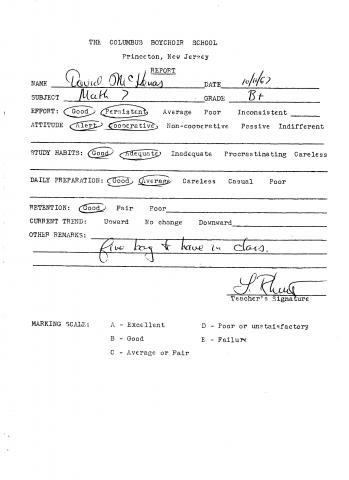 THE COLUMBUS BOYCHOIR SCHOOL
Princeton, New Jersey
REPORT
NAME David McK DATE 10/11/67
SUBJECT Math 7 GRADE B+
EFFORT: Good Persistent Average Poor Inconsistent
ATTITUDE Alert Cooperative Non-cooperative Passive Indifferent
STUDY HABITS: Good Adequate Inadequate Procrastinating Careless
DAILY PREPARATION: Good Average Careless Casual Poor
RETENTION: Good Fair Poor
CURRENT TREND: Upward No change Downward
OTHER REMARKS:
Fine boy to have in class.
Teacher's Signature
MARKING SCALE: A - Excellent D - Poor or unstaisfactory
B - Good E - Failure
C - Average or Fair